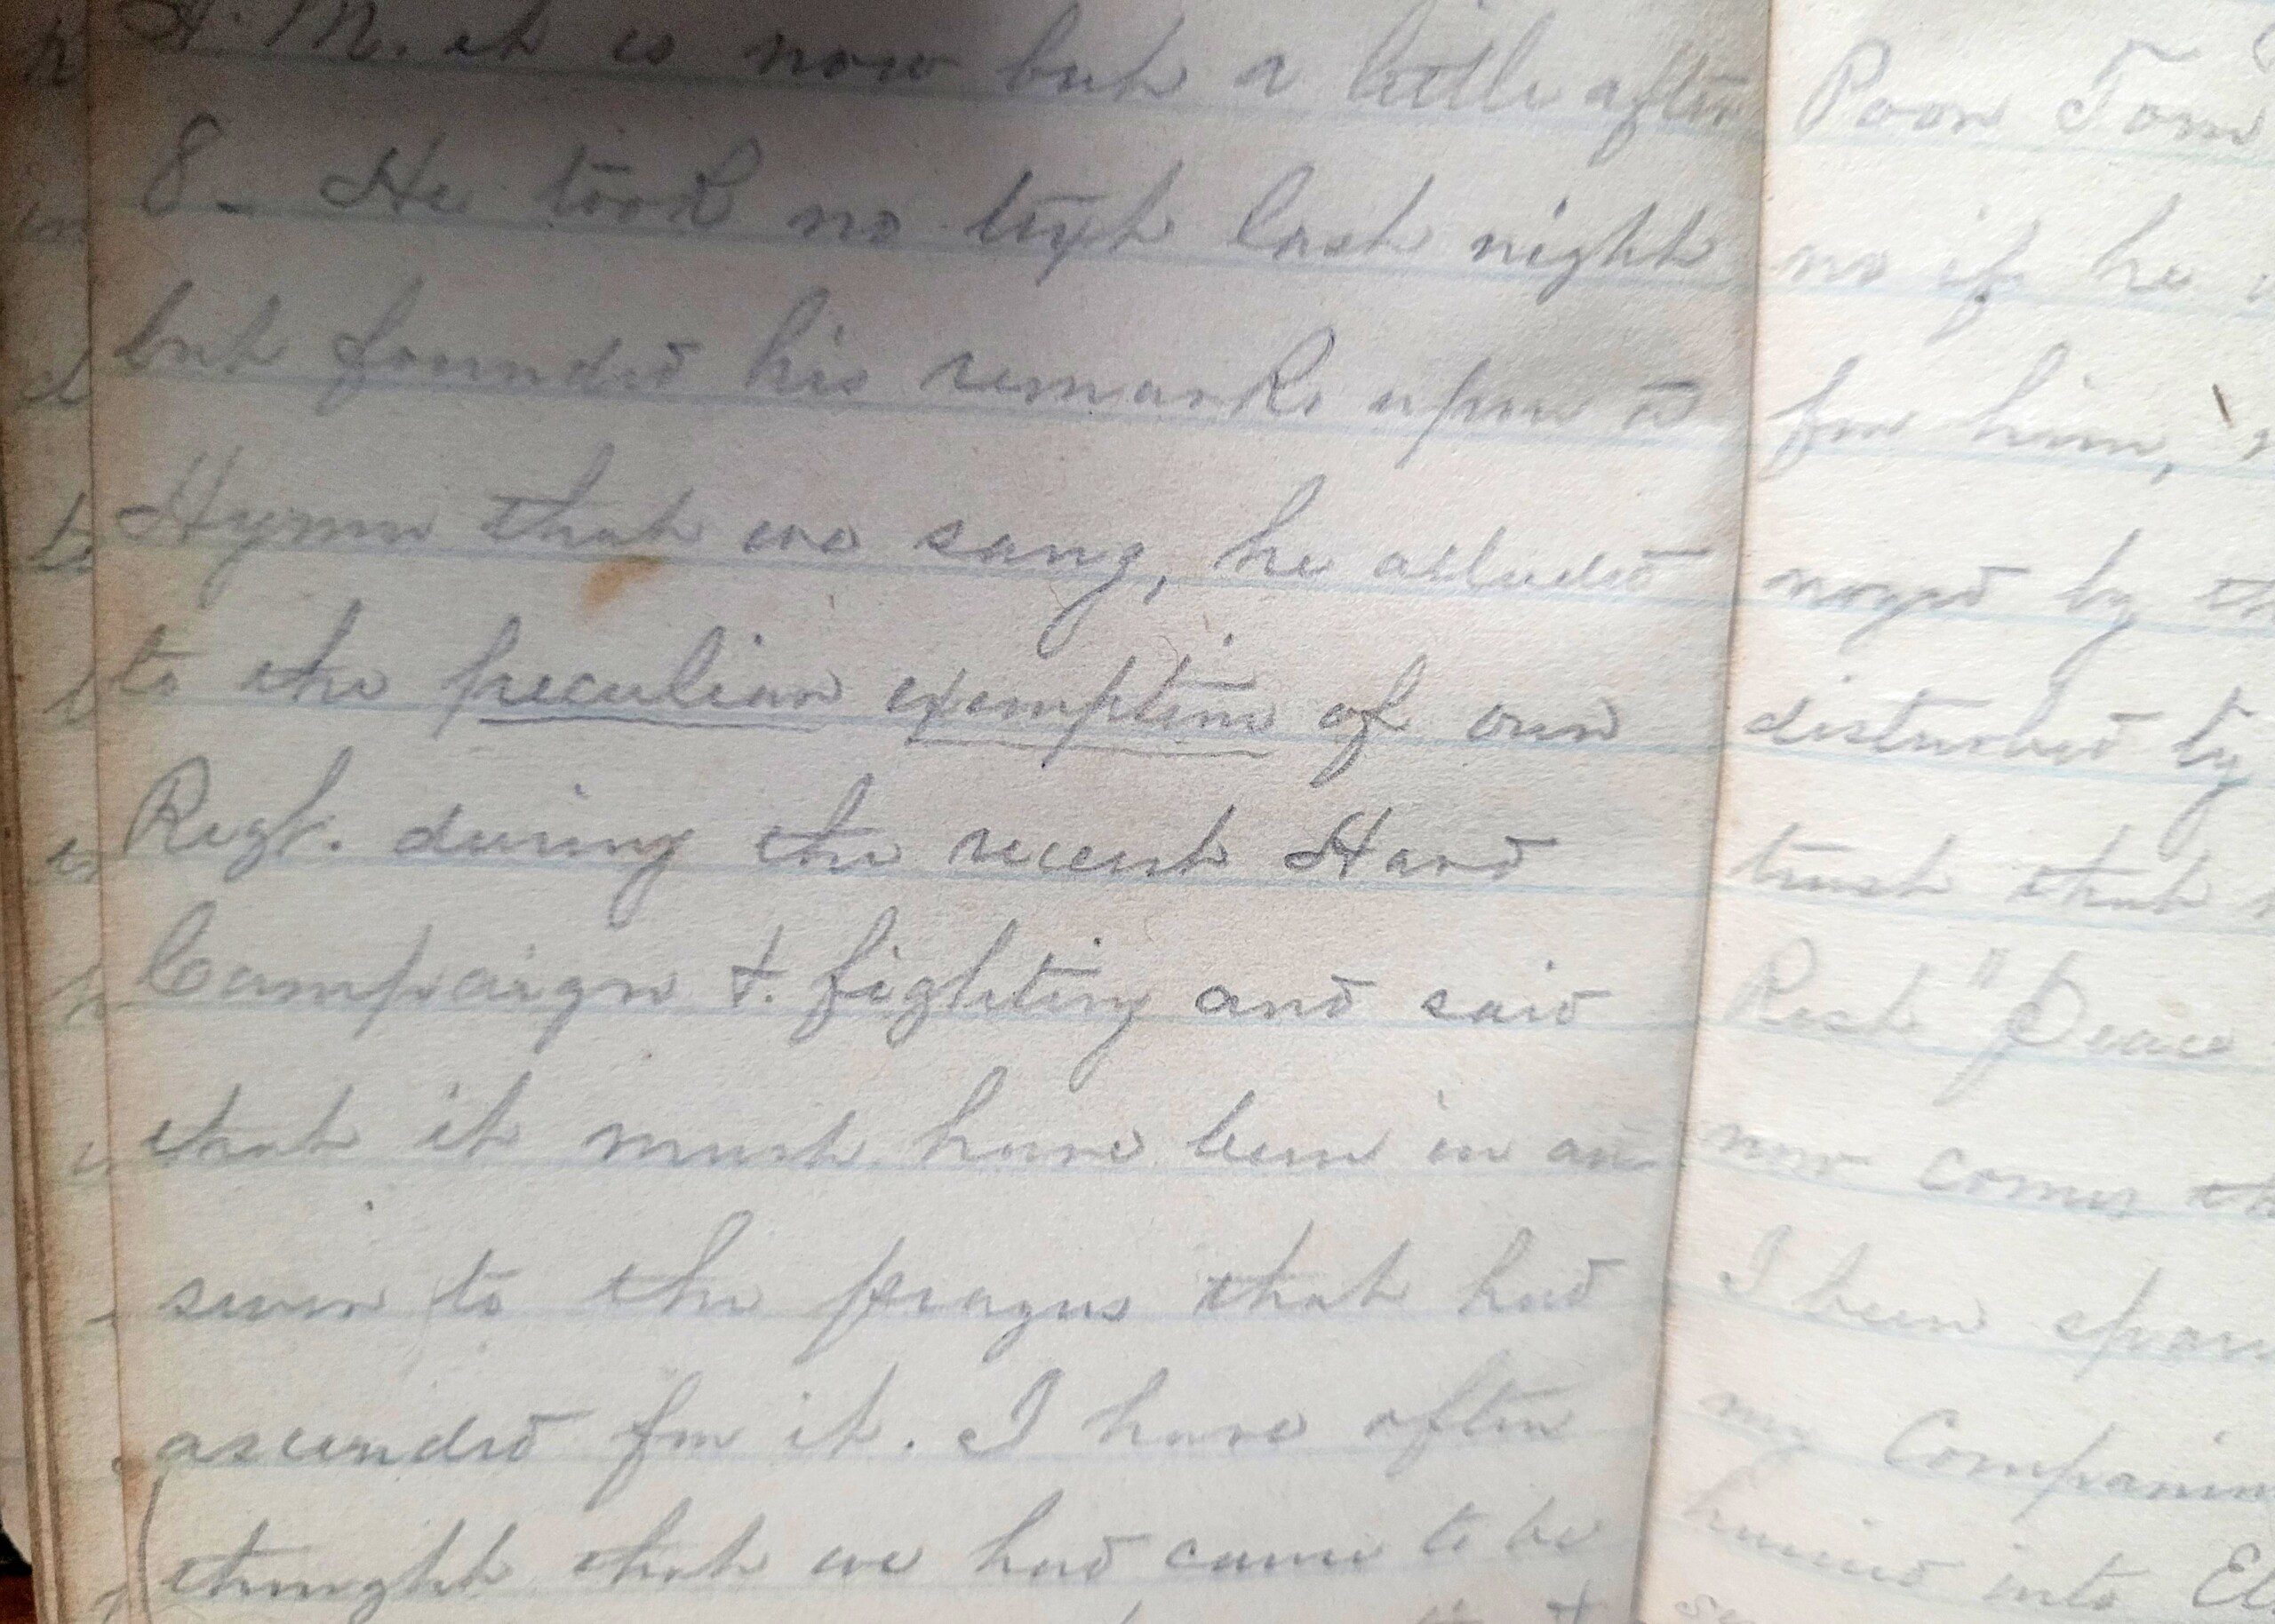 A.M. it is now but a little after
8 - He took no text last night
but founded his remarks upon a
Hymn that we sang, he alluded
to the peculiar exemption of our
Regt. during the recent Hard
Campaign & fighting and said
that it must have been in an-
swer to the prayers that had
ascended for it. I have often
thought that we had came to be
Poor Tom
no if he
for him,
noyed by th
disturbed by
trust that
Rest "Peace
now comes th
I been spar
my Companion
hurried into El